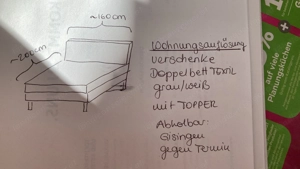 ~160cm
~200cm
Wohnungsauflösung
verschenke
Doppelbett Textil
grau/weiß
mit TOPPER
Abholbar:
Gisingen
gegen Termin
%
+
auf viele
Planungsküchen